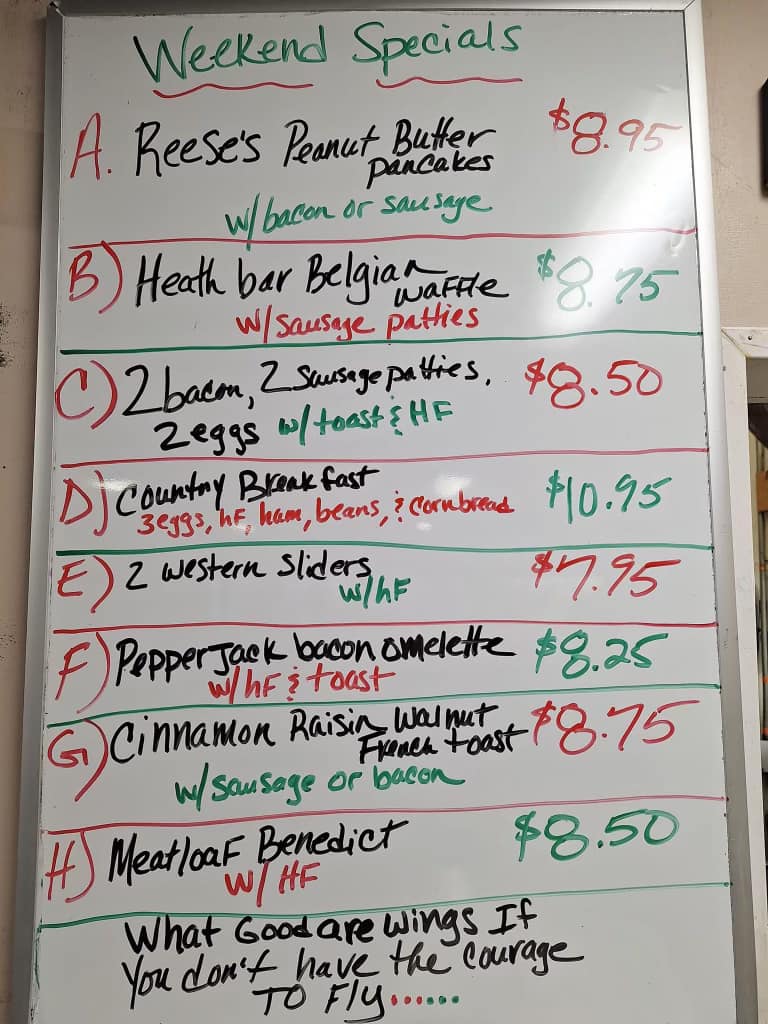 Weekend Specials
A. Reese's Peanut Butter $8.95
pancakes
w/bacon or sausage
B) Heath bar Belgian $8.75
waffle
w/sausage patties
C) 2 bacon, 2 sausage patties, $8.50
2 eggs w/toast & HF
D) Country Breakfast $10.95
3 eggs, hF, ham, beans, & cornbread
E) 2 western sliders $7.95
w/hF
F) Pepper Jack bacon omelette $8.25
w/hF & toast
G) Cinnamon Raisin Walnut $8.75
French toast
w/sausage or bacon
H) Meatloaf Benedict $8.50
w/ HF
What Good are wings If
You don't have the courage
TO Fly......